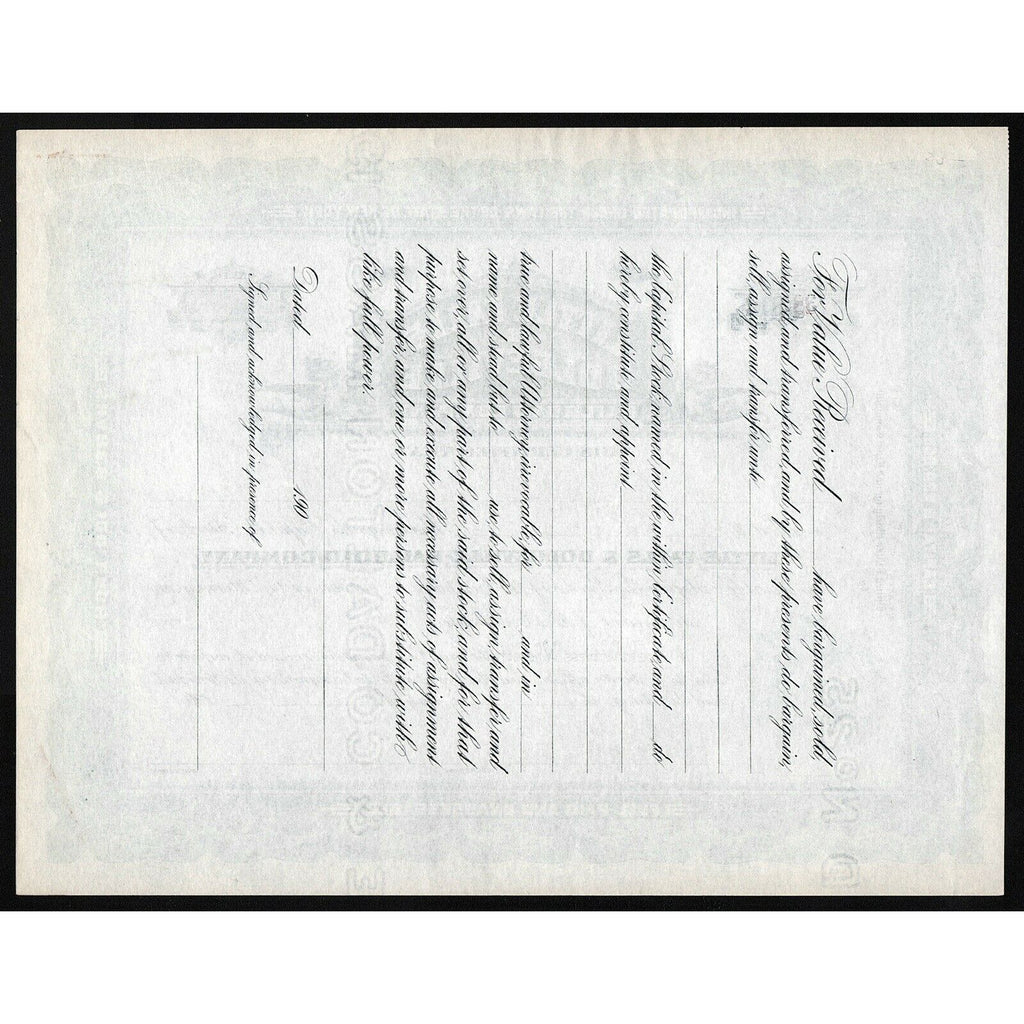 For Value Received have bargained, sold
assigned and transferred, and by these presents, do bargain,
sell, assign and transfer unto
the Capital Stock named in the within Certificate, and do
hereby constitute and appoint
true and lawful Attorney, irrevocable, for and in
name and stead but to use, to sell, assign, transfer and
set over, all or any part of the said stock, and for that
purpose to make and execute all necessary acts of assignment
and transfer, and one or more persons to substitute with
like full power.
Dated 190
Signed and acknowledged in presence of
LITTLE FALLS & DOLGEVILLE RAILROAD COMPANY